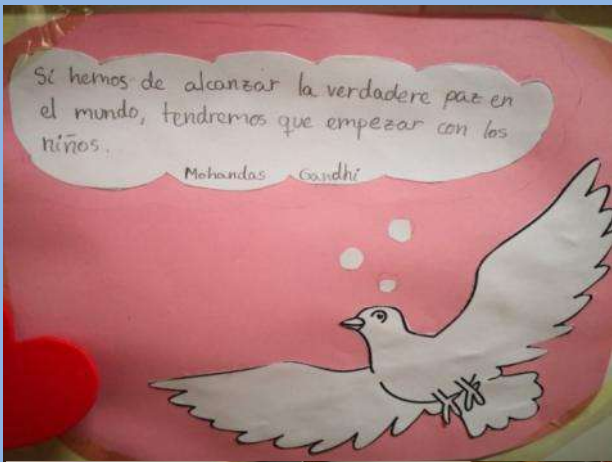 Si hemos de alcanzar la verdadere paz en
el mundo, tendremos que empezar con los
niños.
Mohandas Gandhi